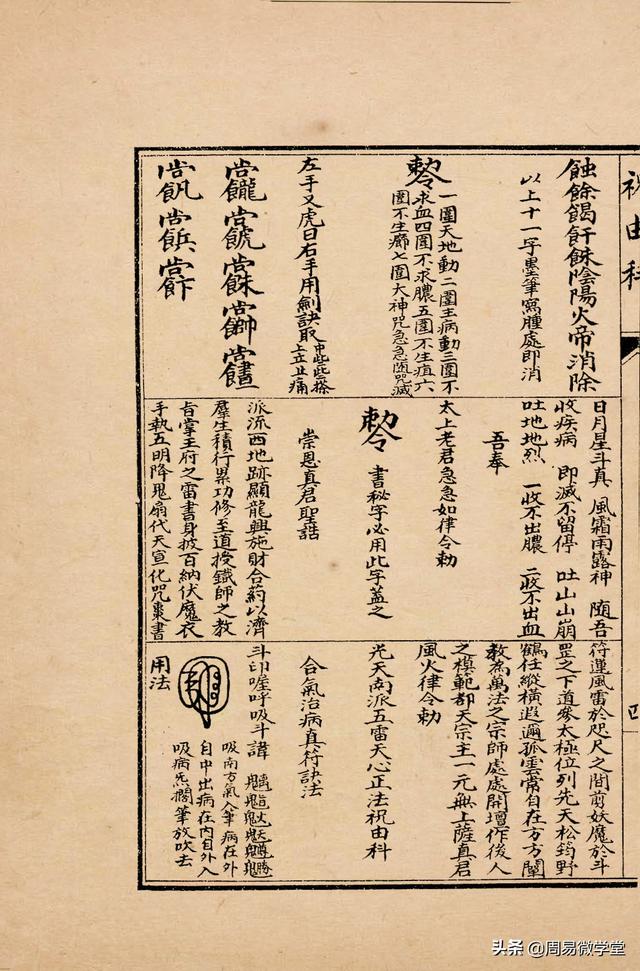 祝由科
四
蝕餘餲飦餗陰陽火帝消除
以上十一字墨筆寫腫處即消
勅令
一圈天地動二圈主病動三圈不
求血四圈不求膿五圈不生疽六
圈不生癤七圈大神咒急急随咒滅
左手叉虎口右手用劍訣取
上立止痛
日月星斗真 風霜雨露神 随吾
收疾病 即滅不留停 吐山山崩
吐地地烈 一收不出膿 二收不出血
吾奉
太上老君急急如律令勅
勅令 書秘字必用此字蓋之
崇恩真君聖誥
派流西地跡顯龍興施財合葯以濟
羣生積行累功修至道授鐵師之教
旨掌王府之雷書身披百納伏魔衣
手執五明降鬼扇代天宣化咒棗書
符運風雷於咫尺之間剪妖魔於斗
罡之下道參太極位列先天松筠野
鶴任縱橫遐邇孤雲常自在方方闡
教為萬法之宗師處處開壇作後人
之模範都天宗主一元無上薩真君
風火律令勅
光天南派五雷天心正法祝由科
合氣治病真符訣法
斗印喔呼吸斗諱
吸南方氣入筆 病在外
自中出病在内自外入
吸病炁擱筆放吹去
用法
头条 @周易微学堂